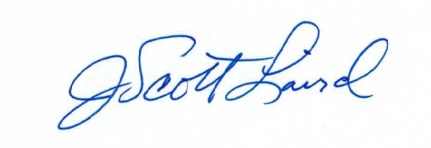 J Scott Laird